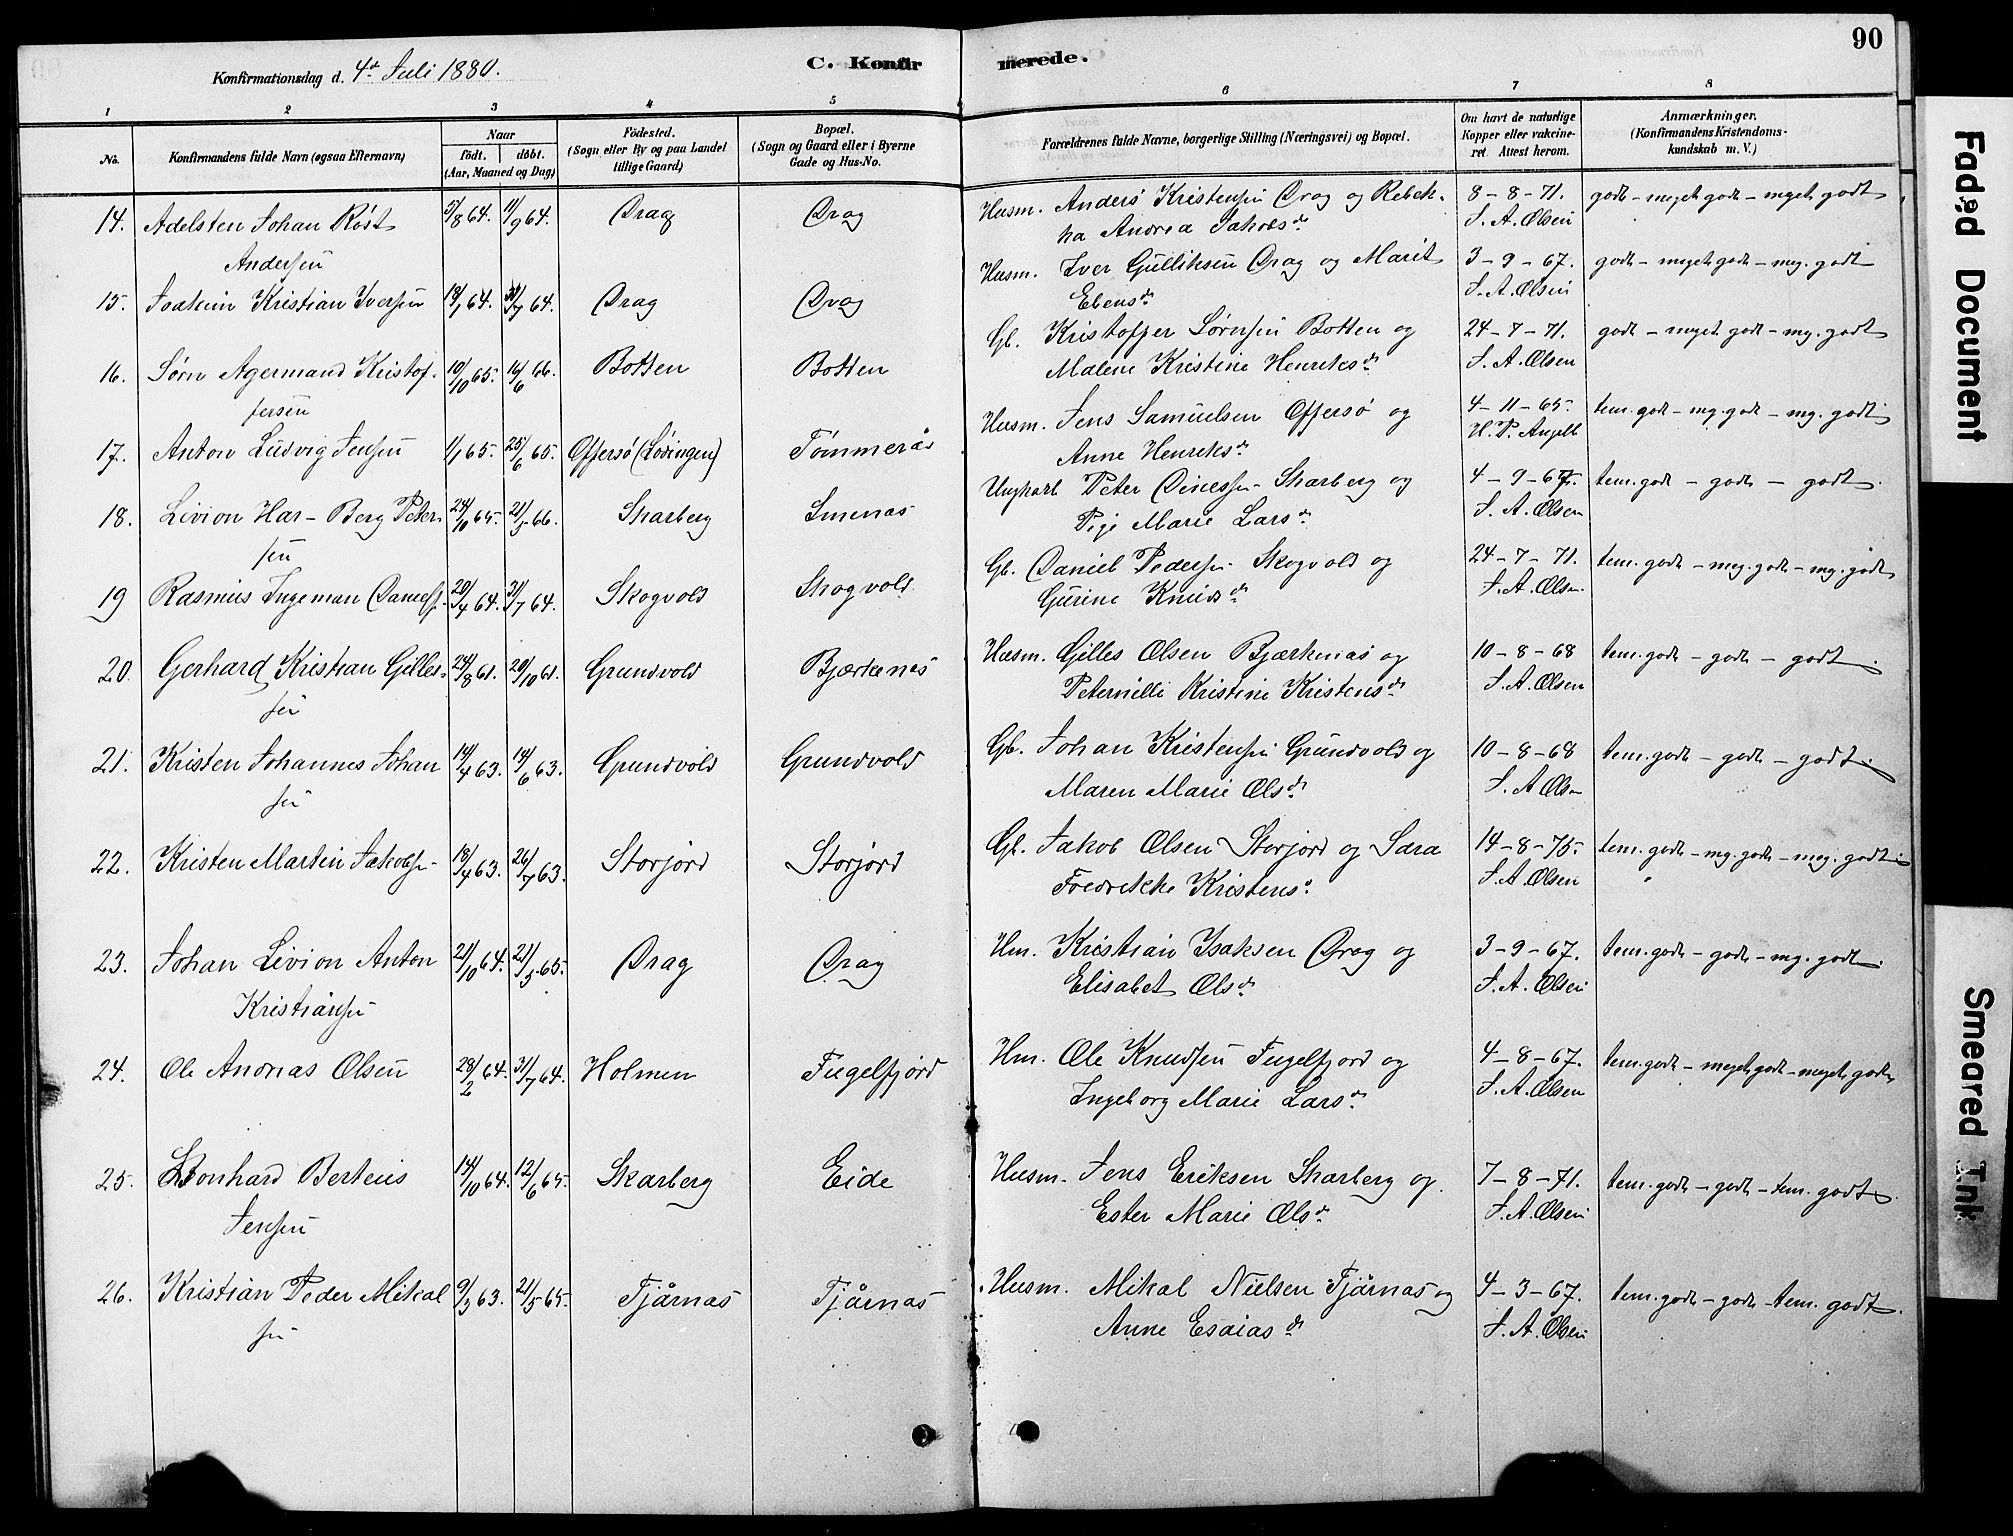 90
Konfirmationsdag d. 4de Juli 1880. C. Konfirmerede.
1 2 3 4 5 6 7 8
No. Konfirmandens fulde Navn (ogsaa Efternavn) Naar født. døbt. (Aar, Maaned og Dag) Fødested. (Sogn eller By og paa Landet tillige Gaard) Bopæl. (Sogn og Gaard eller i Byerne Gade og Hus-No. Forældrenes fulde Navne, borgerlige Stilling (Næringsvei) og Bopæl. Om havt de naturlige Kopper eller vakcineret. Attest herom. Anmærkninger. (Konfirmandens Kristendomskundskab m. V.)
14. Adelsten Johan Röst 5/8 64. 11/9 64. Drag Drag Husm. Anders Kristensen Drag og Rebek- 8-8-71. godt - meget godt - meget godt
Andersen ka Andrea Jakobsd. J. A. Olsen
15. Joakim Kristian Iversen 18/1 64. 31/7 64. Drag Drag Husm. Iver Gulliksen Drag og Marit 3-9-67. godt - meget godt - meg. godt
Ebensd. J. A. Olsen
16. Sørn Agermand Kristof- 10/10 65. 16/6 66. Botten Botten Gb. Kristoffer Sørnsen Botten og 24-7-71. godt - meget godt - mg. godt
fersen Malene Kristine Henriksd. J. A. Olsen
17. Anton Ludvig Jensen 1/1 65. 25/6 65. Offersø (Lødingen) Tømmerås Husm. Jens Samuelsen Offersø og 4-11-65. tem. godt - mg. godt - mg. godt
Anne Henriksd. H. P. Angell
18. Livion Har-Berg Peter- 24/10 65. 21/5 66. Skarberg Smenas Ungkarl Peter Dinessen Skarberg og 4-9-67. tem. godt - godt - godt.
sen Pige Marie Larsd. J. A. Olsen
19 Rasmus Ingeman Danielss. 20/4 64. 31/7 64. Skogvold Skogvold. Gb. Daniel Pedersen Skogvold og 24-7-71. tem. godt - meg. godt - mg. godt
Gurine Knudsd. J. A. Olsen.
20. Gerhard Kristian Gilles- 24/8 61. 20/10 61. Grundvold Bjærkenes Husm. Gilles Olsen Bjærkenas og 10-8-68 tem. godt - godt - godt.
sen Peternille Kristine Kristensd. J. A. Olsen
21. Kristen Johannes Johan 14/4 63. 14/6 63. Grundvold Grundvold Gb. Johan Kristensen Grundvold og 10-8-68 tem. godt - godt - godt.
sen Maren Marie Olsd. J. A Olsen
22. Kristen Martin Jakobsen 18/4 63. 26/7 63. Storjord Storjord Gb. Jakob Olsen Storjord og Sara 14-8-75. tem. godt - mg. godt - meg. godt
Fredrikke Kristens. J. A. Olsen
23. Johan Livion Anton 21/10 64. 21/5 65. Drag Drag Hm. Kristian Isaksen Drag og 3-9-67. tem. godt - godt - mg. godt.
Kristiansen Elisabet Olsd. J. A. Olsen
24. Ole Andreas Olsen 28/2 64. 31/7 64. Holmen Fugelfjord Hm. Ole Knudsen Fugelfjord og 4-8-67. tem. godt - meget godt - meget godt
Ingeborg Marie Larsd. J. A. Olsen
25. Leonhard Berteus 14/10 64. 12/6 65. Skarberg Eide Husm. Jens Eriksen Skarberg og 7-8-71. tem. godt - godt - tem. godt.
Jensen Ester Marie Olsd. J. A. Olsen
26. Kristian Peder Mikal 9/3 63. 21/5 65. Tjårnas Tjårnas Husm. Mikal Nielsen Tjårnas og 4-3-67. tem. godt - godt - tem. godt.
sen Anne Esaiasd. J. A. Olsen
Faded Document
Smeared Ink